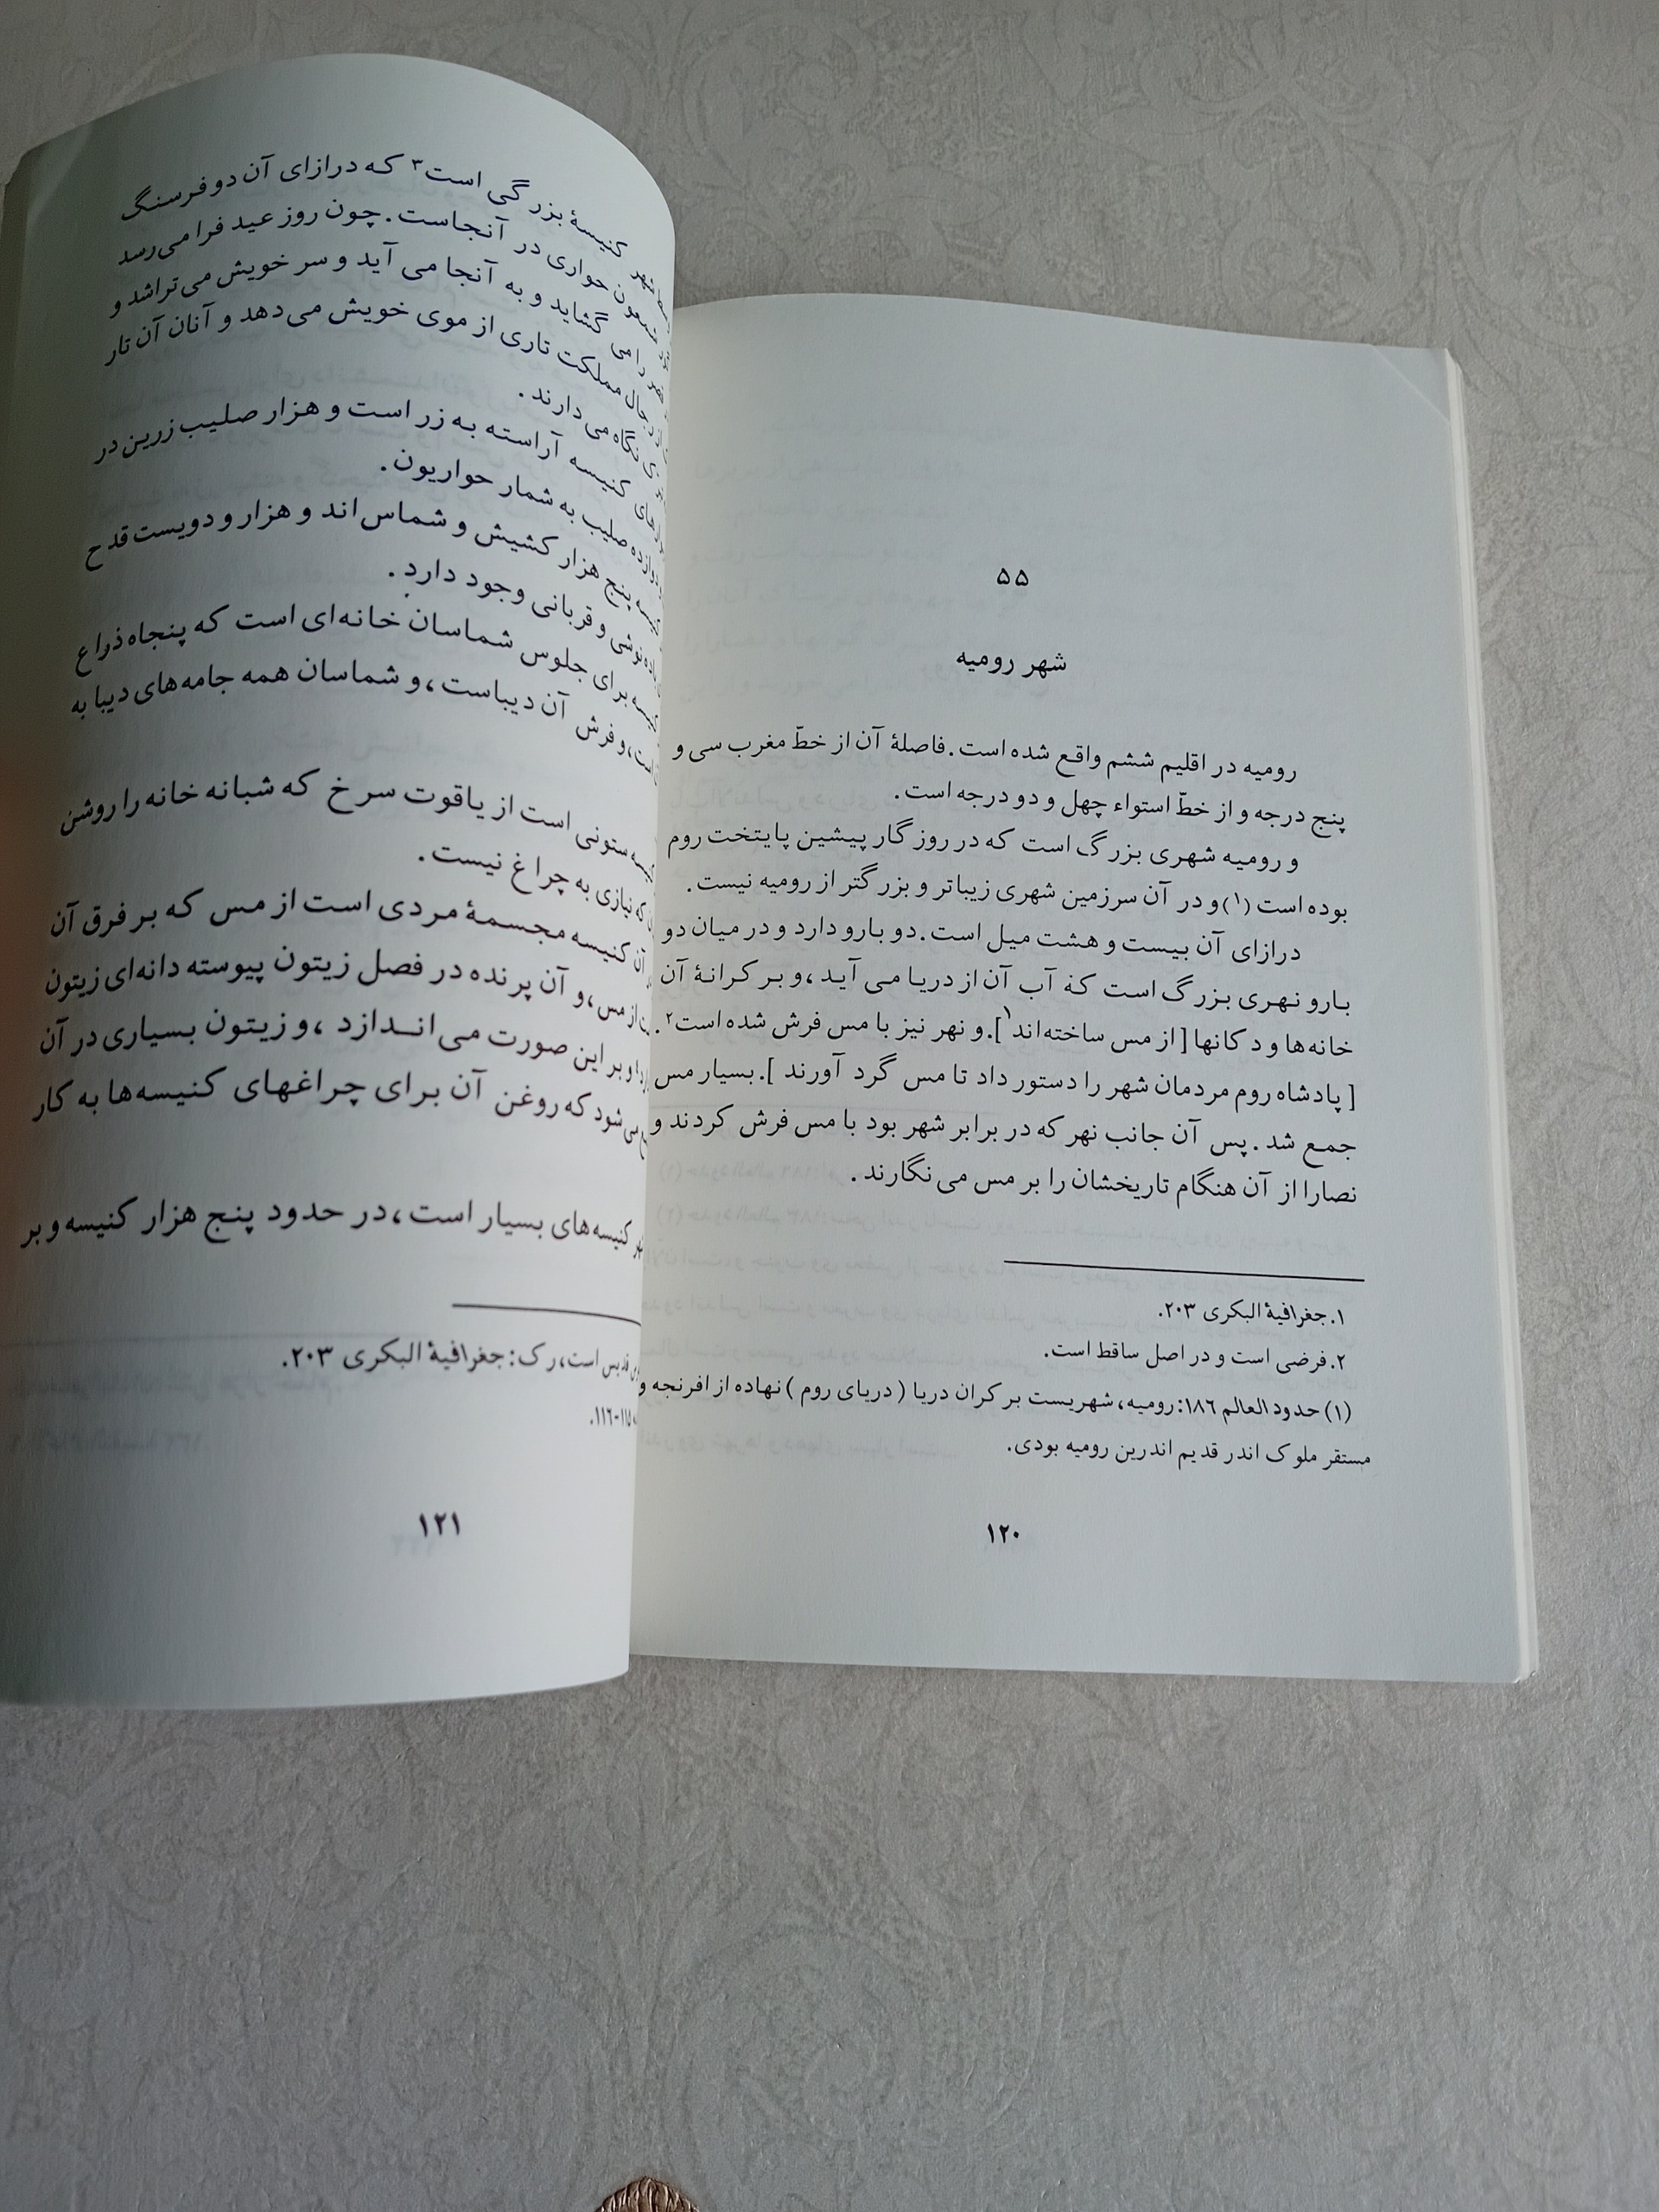 ۵۵
شهر رومیه
رومیه در اقلیم ششم واقع شده است. فاصلهٔ آن از خطّ مغرب سی و
پنج درجه و از خطّ استواء چهل و دو درجه است.
و رومیه شهری بزرگ است که در روزگار پیشین پایتخت روم
بوده است (۱) و در آن سرزمین شهری زیباتر و بزرگتر از رومیه نیست.
درازای آن بیست و هشت میل است. دو بارو دارد و در میان دو
بارو نهری بزرگ است که آب آن از دریا می آید، و بر کرانهٔ آن
خانه‌ها و دکانها [از مس ساخته‌اند۱]. و نهر نیز با مس فرش شده است۲.
[پادشاه روم مردمان شهر را دستور داد تا مس گرد آورند]. بسیار مس
جمع شد. پس آن جانب نهر که در برابر شهر بود با مس فرش کردند و
نصارا از آن هنگام تاریخشان را بر مس می نگارند.
۱. جغرافیة البکری ۲۰۳.
۲. فرضی است و در اصل ساقط است.
(۱) حدود العالم ۱۸۶: رومیه، شهریست بر کران دریا (دریای روم) نهاده از افرنجه و
مستقر ملوک اندر قدیم اندرین رومیه بودی.
۱۲۰
شهر کنیسهٔ بزرگی است۳ که درازای آن دو فرسنگ
شمعون حواری در آنجاست. چون روز عید فرا می‌رسد
را می گشاید و به آنجا می آید و سر خویش می‌تراشد و
رجال مملکت تاری از موی خویش می‌دهد و آنان آن تار
نگاه می‌دارند.
کنیسه آراسته به زر است و هزار صلیب زرین در
دوازده صلیب به شمار حواریون.
پنج هزار کشیش و شماس‌اند و هزار و دویست قدح
باده‌نوشی و قربانی وجود دارد.
کنیسه برای جلوس شماسان خانه‌ای است که پنجاه ذراع
است، و فرش آن دیباست، و شماسان همه جامه‌های دیبا به
ستونی است از یاقوت سرخ که شبانه خانه را روشن
که نیازی به چراغ نیست.
آن کنیسه مجسمهٔ مردی است از مس که بر فرق آن
از مس، و آن پرنده در فصل زیتون پیوسته دانه‌ای زیتون
و بر این صورت می‌اندازد، و زیتون بسیاری در آن
می‌شود که روغن آن برای چراغهای کنیسه‌ها به کار
کنیسه‌های بسیار است، در حدود پنج هزار کنیسه و بر
قدیس است، رک: جغرافیة البکری ۲۰۳.
۱۱۵-۱۱۶.
۱۲۱